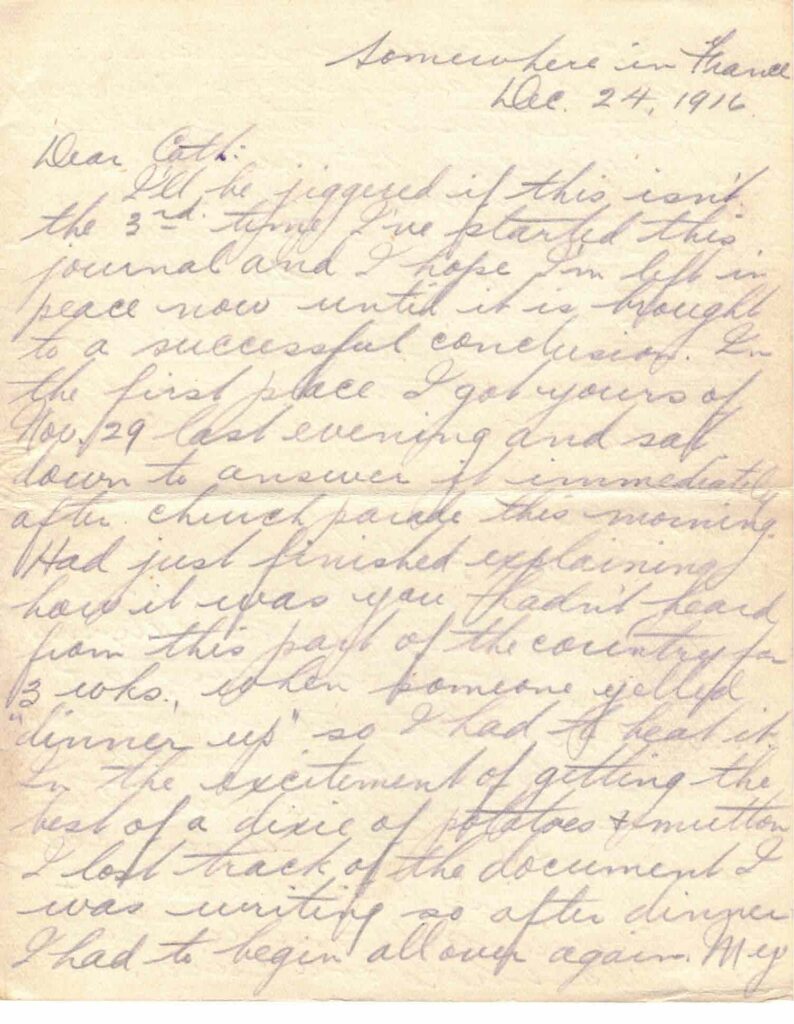 Somewhere in France
Dec. 24, 1916
Dear Cath:
I'll be jiggered if this isn't
the 3rd. time I've started this
journal and I hope I'm left in
peace now until it is brought
to a successful conclusion. In
the first place I got yours of
Nov. 29 last evening and sat
down to answer it immediately
after church parade this morning.
Had just finished explaining
how it was you hadn't heard
from this part of the country for
3 wks., when someone yelled
"dinner up" so I had to beat it.
In the excitement of getting the
best of a dixie of potatoes & mutton
I lost track of the document I
was writing so after dinner
I had to begin all over again. My